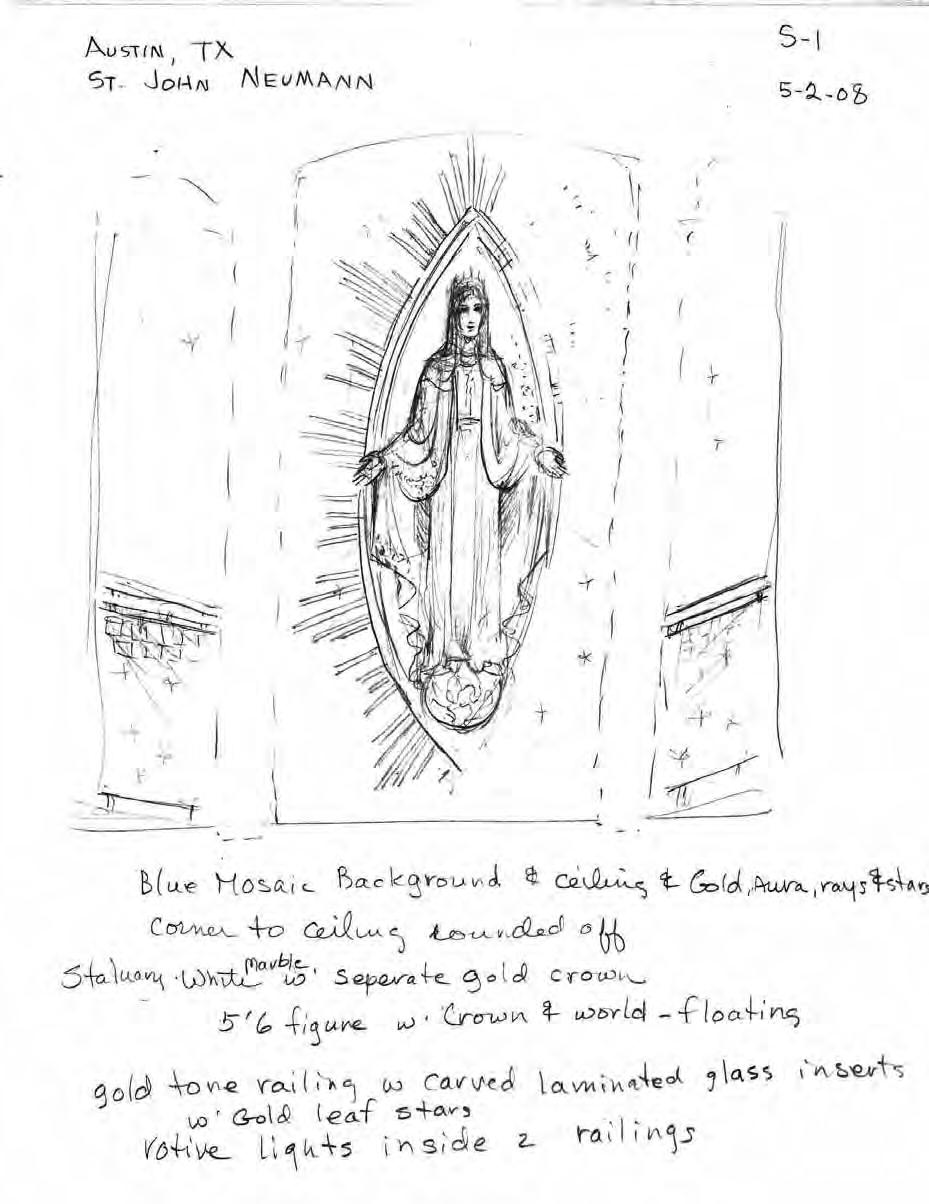 AUSTIN, TX
ST. JOHN NEUMANN
S-1
5-2-08
Blue Mosaic Background & ceiling & Gold, Aura, rays & stars
corner to ceiling rounded off
Statuary White Marble w' seperate gold crown
5'6 figure w. Crown & world - floating
gold tone railing w carved laminated glass inserts
w' Gold leaf stars
votive lights inside 2 railings